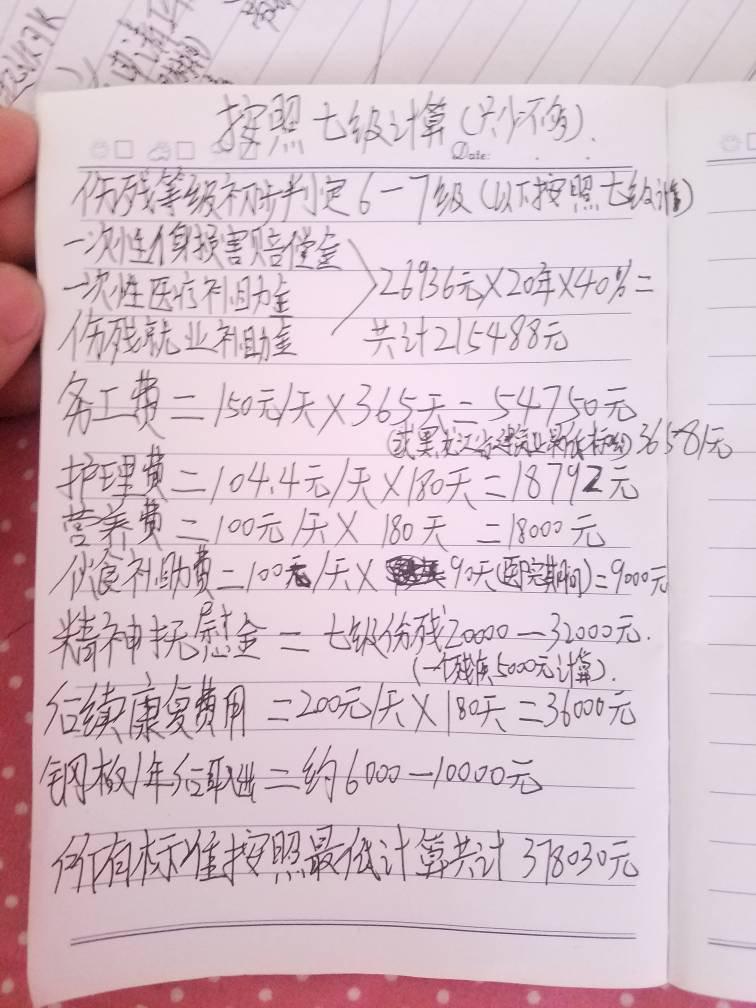 按照七级计算(只少不多).
Date:
伤残等级初步判定6—7级(以下按照七级计算)
一次性伤损害赔偿金
一次性医疗补助金
伤残就业补助金
26936元×20年×40%=
共计215488元
务工费=150元/天×365天=54750元
(或黑龙江省建筑业最低标准)36581元
护理费=104.4元/天×180天=18792元
营养费=100元/天×180天=18000元
伙食补助费=100元/天×90天(医院期间)=9000元
精神抚慰金=七级伤残20000—32000元.
(一个残疾5000元计算).
后续康复费用=200元/天×180天=36000元
钢板1年后取出=约6000—10000元
所有标准按照最低计算共计378030元